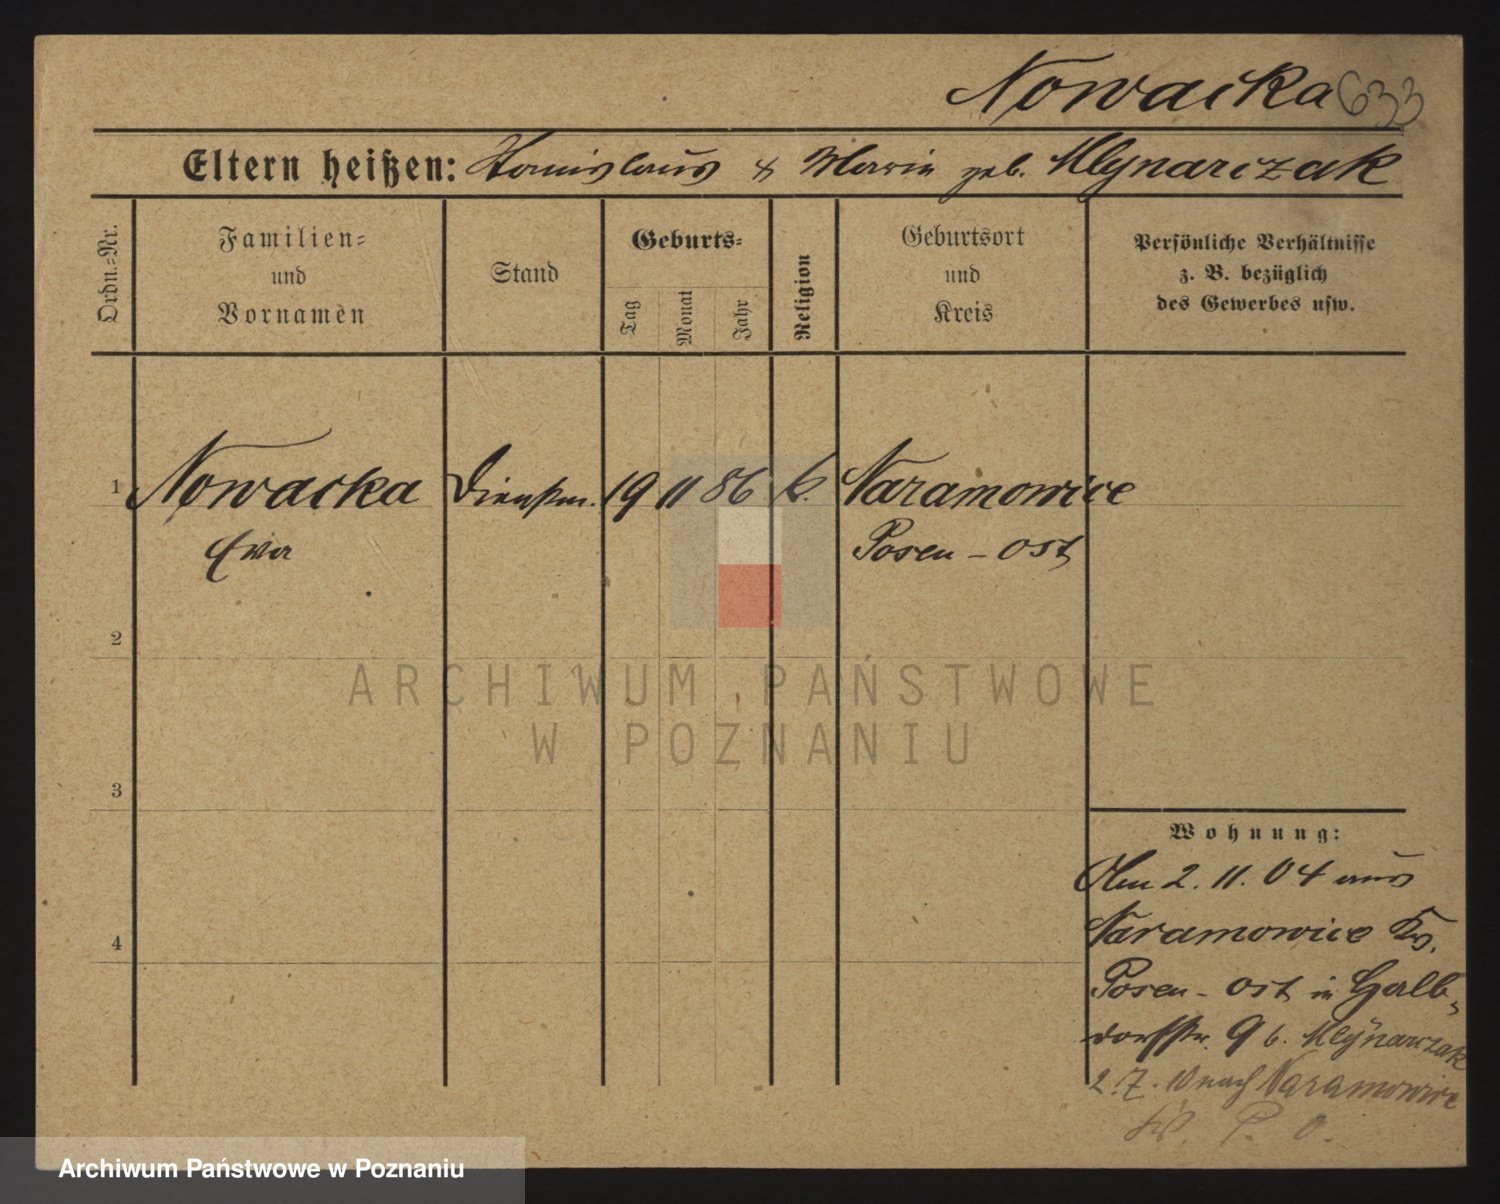 Nowacka 633
Eltern heißen: Stanislaus & Maria geb. Mlynarczak
Ordn.=Nr.
Familien=
und
Vornamen
Stand
Geburts=
Tag
Monat
Jahr
Religion
Geburtsort
und
Kreis
Persönliche Verhältnisse
z. B. bezüglich
des Gewerbes usw.
1 Nowacka Dienstm. 19 11 86 k. Naramowice
Eva Posen - Ost
2
ARCHIWUM PAŃSTWOWE
W POZNANIU
3
Wohnung:
Am 2. 11. 04 aus
Naramowice Kr.
4
Posen - Ost in Halb-
dorfstr. 9 b. Mlynarczak
2. 7. 10 nach Naramowice
Kr. P. O.
Archiwum Państwowe w Poznaniu